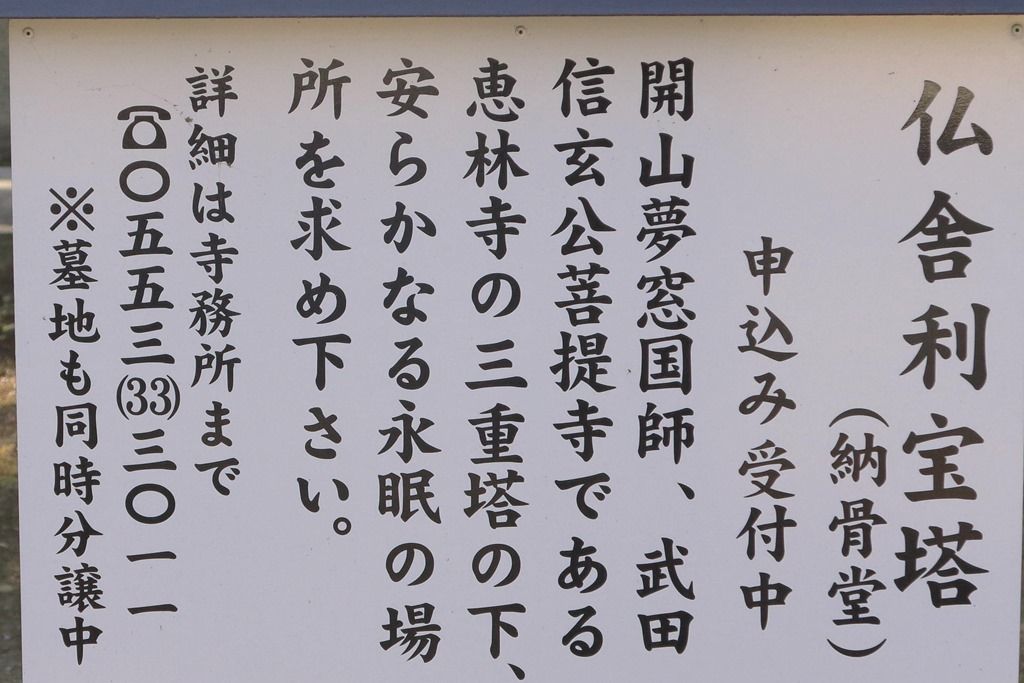 仏舎利宝塔
（納骨堂）
申込み受付中
開山夢窓国師、武田
信玄公菩提寺である
恵林寺の三重塔の下、
安らかなる永眠の場
所を求め下さい。
詳細は寺務所まで
☎〇五五三(33)三〇一一
※墓地も同時分譲中